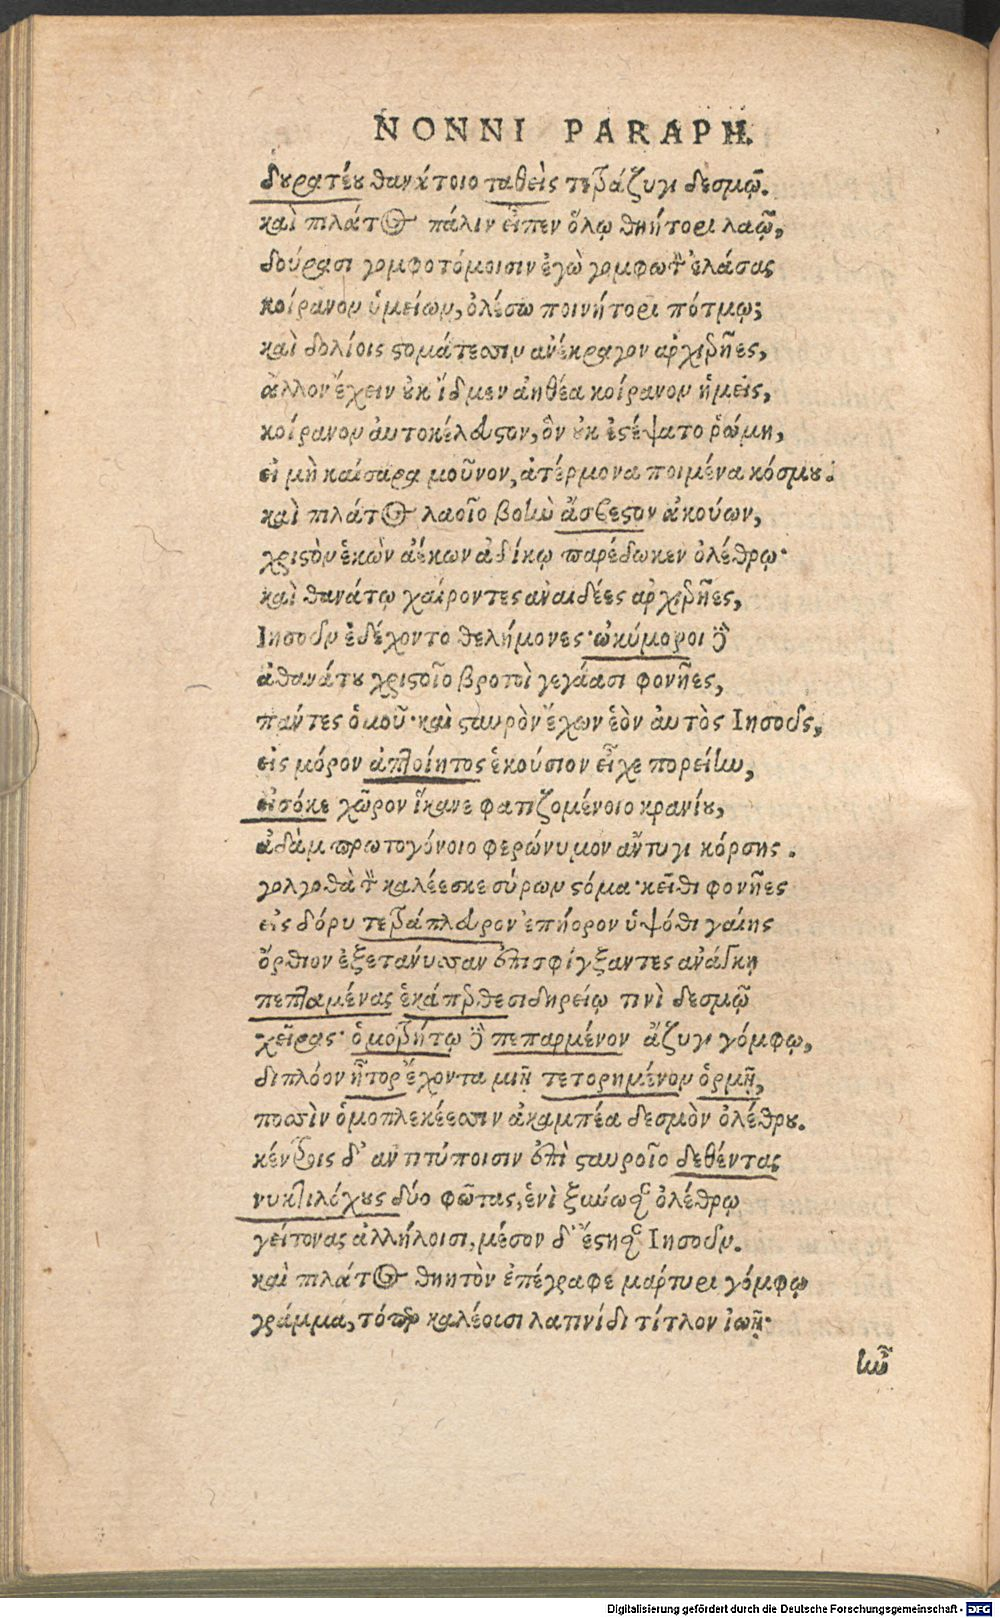 NONNI PARAPH.
δουρατέου θανάτοιο ταθεὶς τετράζυγι δεσμῷ.
καὶ πιλάτος πάλιν εἶπεν ὅλῳ θηήτορι λαῷ,
δούρασι γομφοτόμοισιν ἐγὼ γομφωτὸν ἐλάσας
κοίρανον ὑμείων, ὀλέσω ποινήτορι πότμῳ;
καὶ δολίοις στομάτεσσιν ἀνέκραγον ἀρχιερῆες,
ἄλλον ἔχειν οὐκ ἴδμεν ἀηθέα κοίρανον ἡμεῖς,
κοίρανον ἀυτοκέλευστον, ὃν οὐκ ἐστέψατο ῥώμη,
εἰ μὴ καίσαρα μοῦνον, ἀτέρμονα ποιμένα κόσμου.
καὶ πιλάτος λαοῖο βοὴν ἄσβεστον ἀκούων,
χριστὸν ἑκὼν ἀέκων ἀδίκῳ παρέδωκεν ὀλέθρῳ·
καὶ θανάτῳ χαίροντες ἀναιδέες ἀρχιερῆες,
Ιησοῦν ἐδέχοντο θελήμονες· ὠκύμοροι δὲ
ἀθανάτου χριστοῖο βροτοὶ γεγάασι φονῆες,
πάντες ὁμοῦ· καὶ σταυρὸν ἔχων ἑὸν ἀυτὸς Ιησοῦς,
εἰς μόρον ἀπτοίητος ἑκούσιον εἶχε πορείην,
εἰσόκε χῶρον ἵκανε φατιζομένοιο κρανίου,
ἀδὰμ πρωτογόνοιο φερώνυμον ἄντυγι κόρσης.
γολγοθὰ τὸν καλέεσκε σύρων στόμα· κεῖθι φονῆες
εἰς δόρυ τετράπλευρον ἐπήορον ὑψόθι γαίης
ὄρθιον ἐξετάνυσσαν ἐπισφίγξαντες ἀνάγκῃ
πεπταμένας ἑκάτερθε σιδηρείῳ τινὶ δεσμῷ
χεῖρας· ὁμοτρήτῳ δὲ πεπαρμένον ἄζυγι γόμφῳ,
διπλόον ἦτορ ἔχοντα μιῇ τετορημένον ὁρμῇ,
ποσσὶν ὁμοπλεκέεσσιν ἀκαμπέα δεσμὸν ὀλέθρου.
κέντροις δ' ἀντιτύποισιν ἐπὶ σταυροῖο δεθέντας
νυκτιλόχους δύο φῶτας, ἑνὶ ξυνώσαν ὀλέθρῳ
γείτονας ἀλλήλοισι, μέσον δ' ἔστησαν Ιησοῦν.
καὶ πιλάτος θηητὸν ἐπέγραφε μάρτυρι γόμφῳ
γράμμα, τόπερ καλέουσι λατινίδι τίτλον ἰωῇ·
ἦν